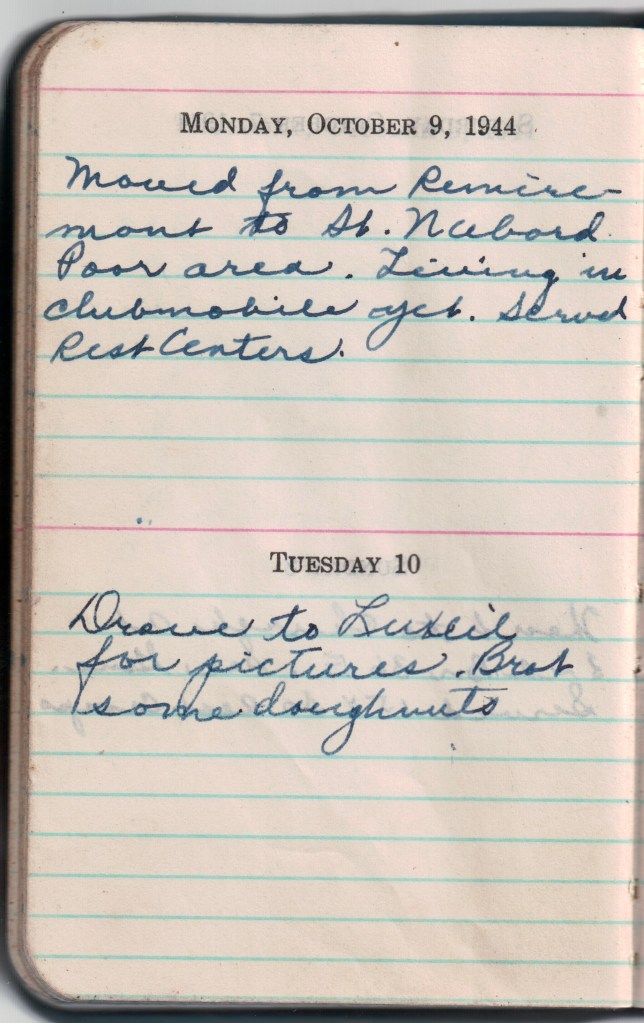 MONDAY, OCTOBER 9, 1944
Moved from Remire-
mont to St. Nabord.
Poor area. Living in
clubmobile yet. Served
Rest Centers.
TUESDAY 10
Drove to Luxeil
for pictures. Brot
some doughnuts